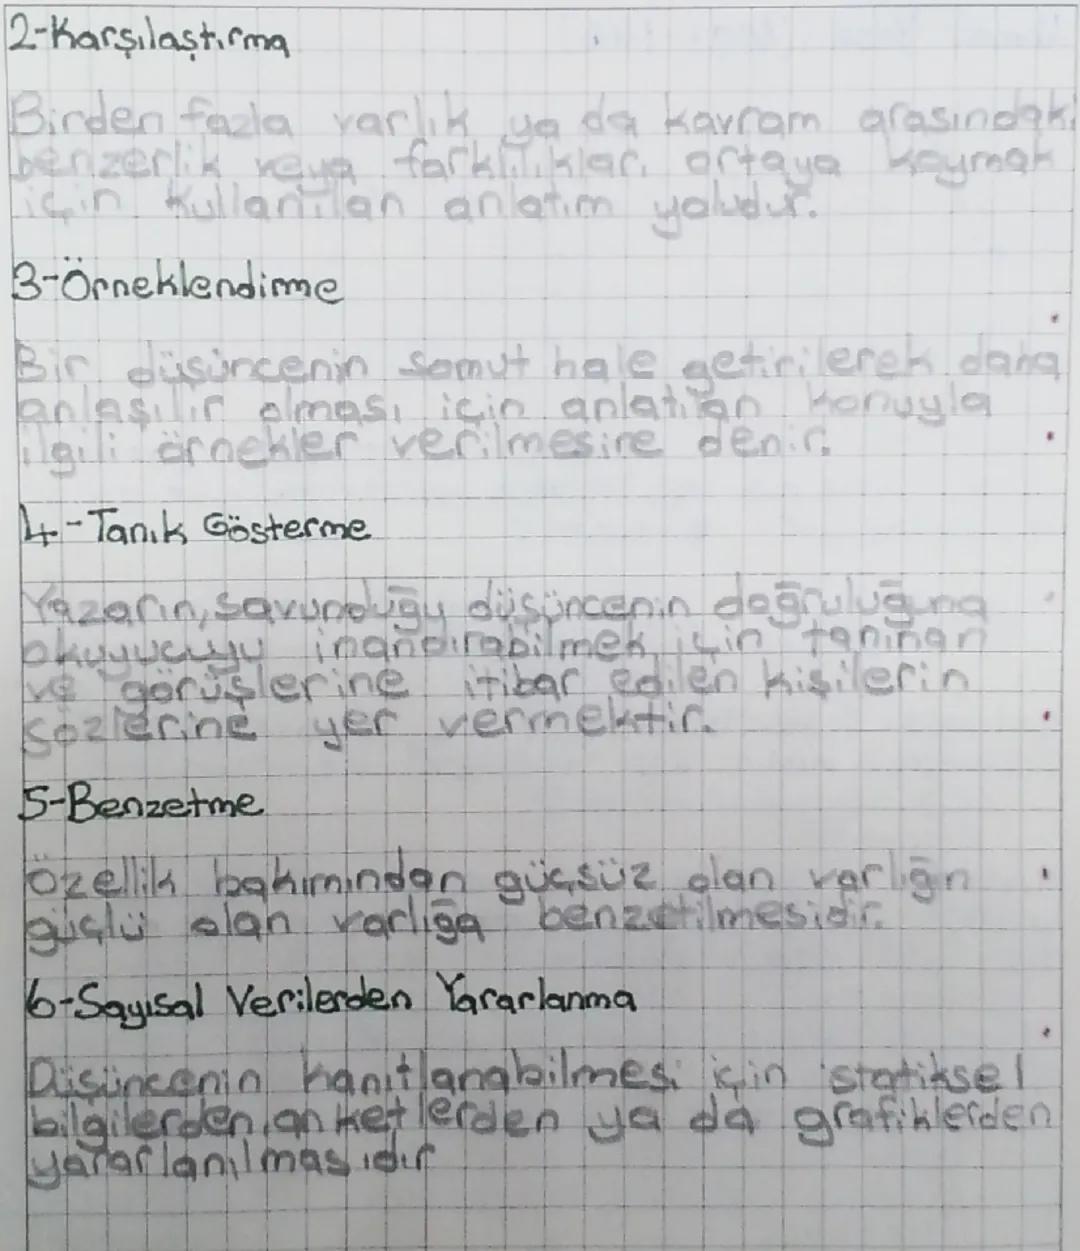 2-Karşılaştırma
Birden fazla varlık ya da kavram arasındaki
benzerlik veya farklılıkları ortaya koymak
için kullanılan anlatım yoludur.
3-Örneklendirme
Bir düşüncenin somut hale getirilerek daha
anlaşılır olması için anlatılan konuyla
ilgili örnekler verilmesine denir.
4-Tanık Gösterme
Yazarın, savunduğu düşüncenin doğruluğuna
okuyucuyu inandırabilmek için tanınan
ve görüşlerine itibar edilen kişilerin
sözlerine yer vermektir.
5-Benzetme
Özellik bakımından güçsüz olan varlığın
güçlü olan varlığa benzetilmesidir.
6-Sayısal Verilerden Yararlanma
Düşüncenin kanıtlanabilmesi için istatiksel
bilgilerden, anketlerden ya da grafiklerden
yararlanılmasıdır